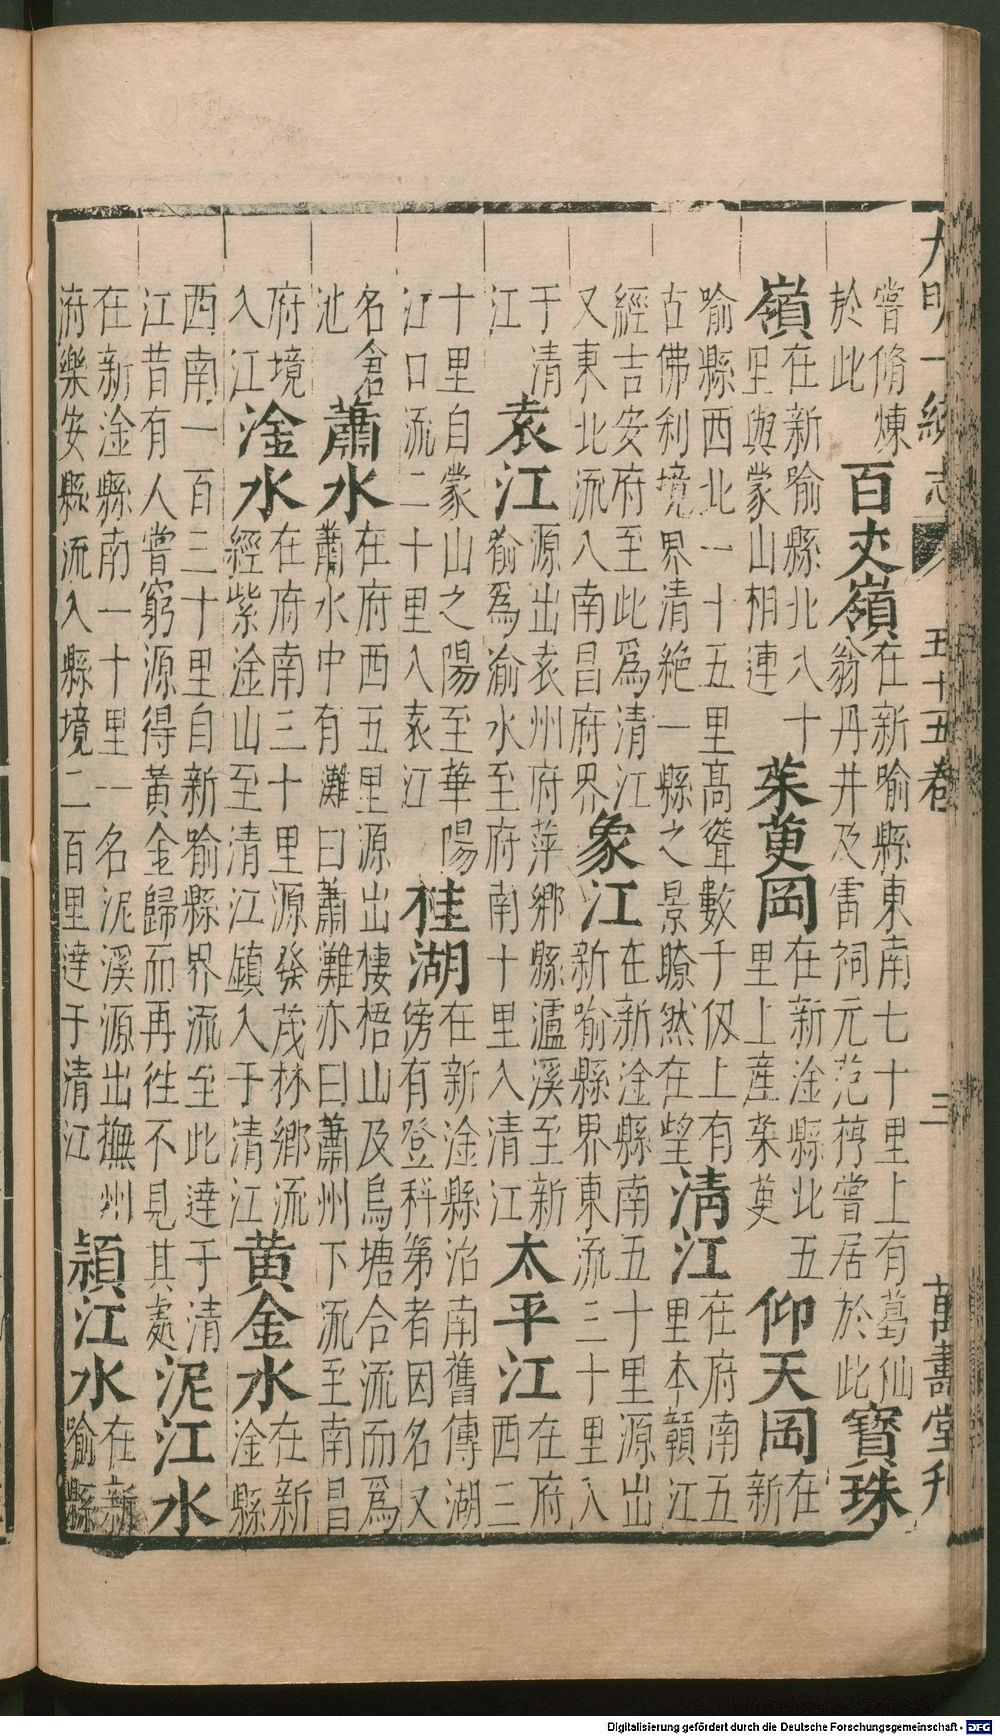 大明一統志 五十五卷 三 萬壽堂刊
嘗脩煉於此 百丈嶺 在新喻縣東南七十里上有葛仙翁丹井及雷祠元范梈嘗居於此 寶珠
嶺 在新喻縣北八十里與蒙山相連 茱萸岡 在新淦縣北五里上產茱萸 仰天岡 在新
喻縣西北一十五里高聳數千仭上有古佛利境界清絶一縣之景瞭然在望 清江 在府南五里本贛江
經吉安府至此爲清江又東北流入南昌府界 象江 在新淦縣南五十里源出新喻縣界東流三十里入
于清江 袁江 源出袁州府萍鄉縣瀘溪至新喻爲渝水至府南十里入清江 太平江 在府西三
十里自蒙山之陽至華陽江口流二十里入袁江 桂湖 在新淦縣治南舊傳湖傍有登科第者因名又
名倉池 蕭水 在府西五里源出棲梧山及烏塘合流而爲蕭水中有灘曰蕭灘亦曰蕭州下流至南昌
府境入江 淦水 在府南三十里源發茂林鄉流經紫淦山至清江鎮入于清江 黄金水 在新淦縣
西南一百三十里自新喻縣界流至此達于清江昔有人嘗窮源得黃金歸而再徃不見其處 泥江水
在新淦縣南一十里一名泥溪源出撫州府樂安縣流入縣境二百里達于清江 潁江水 在新喻縣
Digitalisierung gefördert durch die Deutsche Forschungsgemeinschaft - DFG